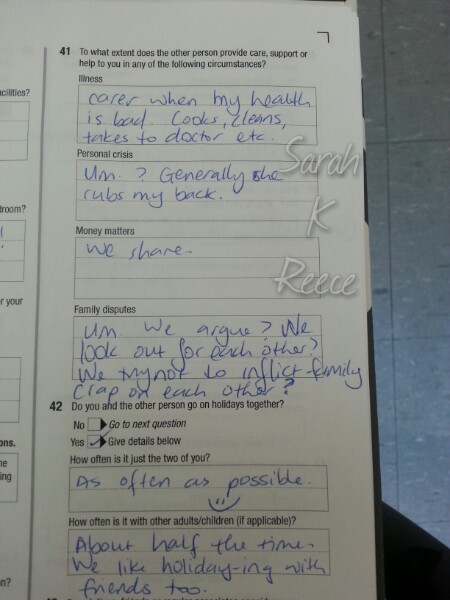 41 To what extent does the other person provide care, support or
help to you in any of the following circumstances?
Illness
carer when my health
is bad. Cooks, cleans,
takes to doctor etc.
Personal crisis
Um. ? Generally she
rubs my back.
Money matters
We share.
Family disputes
Um We argue? We
look out for each other?
We try not to inflict family
crap on each other?
42 Do you and the other person go on holidays together?
No Go to next question
Yes Give details below
How often is it just the two of you?
As often as possible.
How often is it with other adults/children (if applicable)?
About half the time.
We like holiday-ing with
friends too.
Sarah
K
Reece
cilities?
room?
r your
ons.
ne
ing
n?